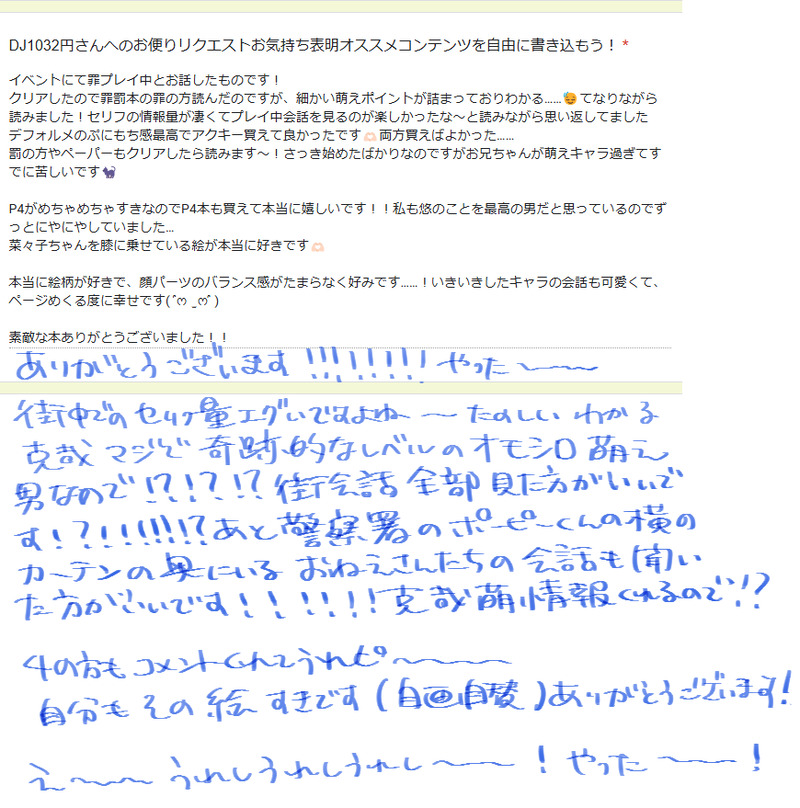 DJ1032円さんへのお便りリクエストお気持ち表明オススメコンテンツを自由に書き込もう！ *
イベントにて罪プレイ中とお話したものです！
クリアしたので罪罰本の罪の方読んだのですが、細かい萌えポイントが詰まっておりわかる……🥳てなりながら
読みました！セリフの情報量が凄くてプレイ中会話を見るのが楽しかったな～と読みながら思い返してました
デフォルメのぷにもち感最高でアクキー買えて良かったです🫶🏻両方買えばよかった……
罰の方やペーパーもクリアしたら読みます～！さっき始めたばかりなのですがお兄ちゃんが萌えキャラ過ぎてす
でに苦しいです🐈‍⬛
P4がめちゃめちゃすきなのでP4本も買えて本当に嬉しいです！！私も悠のことを最高の男だと思っているのでず
っとにやにやしていました…
菜々子ちゃんを膝に乗せている絵が本当に好きです🫶🏻
本当に絵柄が好きで、顔パーツのバランス感がたまらなく好みです……！いきいきしたキャラの会話も可愛くて、
ページめくる度に幸せです(´ෆ`)
素敵な本ありがとうございました！！
ありがとうございます!!!!!!! やった～～～
街中でのセリフ量エグいですよね～たのしい わかる
克哉マジで奇跡的なレベルのオモシロ萌え
男なので!?!?!? 街会話全部見た方がいいで
す!?!!!!!!?あと警察署のポーピーくんの横の
カーテンの奥にいる おねえさんたちの会話も聞い
た方がいいです!!!!!!克哉萌情報くれるので!?
4の方もコメントくれてうれピ～～～～
自分もその絵すきです(自画自賛)ありがとうございます!
え～～～うれしうれしうれし～～～! やった～～～!